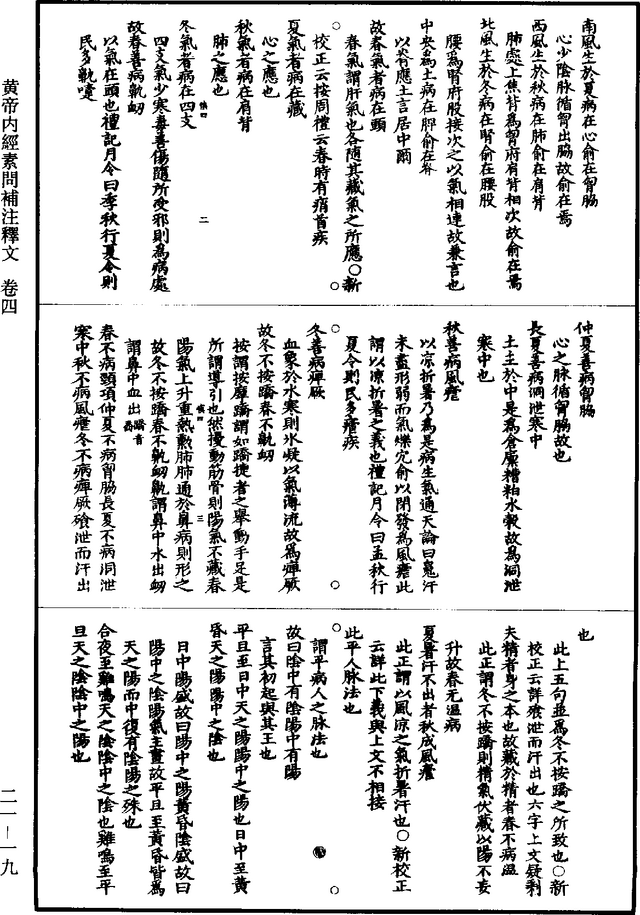 南風生於夏病在心俞在胷脇
心少陰脉循胷出脇故俞在焉
西風生於秋病在肺俞在肩背
肺處上焦背為胷府肩背相次故俞在焉
北風生於冬病在腎俞在腰股
腰為腎府股接次之以氣相連故兼言也
中央為土病在脾俞在脊
以脊應土言居中爾
故春氣者病在頭
春氣謂肝氣也各隨其藏氣之所應○新
校正云按周禮云春時有痟首疾
夏氣者病在藏
心之應也
秋氣者病在肩背
肺之應也
冬氣者病在四支
四支氣少寒毒善傷隨所受邪則為病處
故春善病鼽衂
以氣在頭也禮記月令曰季秋行夏令則
民多鼽嚏
仲夏善病胷脇
心之脉循胷脇故也
長夏善病洞泄寒中
土主於中是為倉廩糟粕水穀故為洞泄
寒中也
秋善病風瘧
以凉折暑乃為是病生氣通天論曰魄汗
未盡形弱而氣爍穴俞以閉發為風瘧此
謂以凉折暑之義也禮記月令曰孟秋行
夏令則民多瘧疾
冬善病痺厥
血象於水寒則水凝以氣薄流故為痺厥
故冬不按蹻春不鼽衂
按謂按摩蹻謂如蹻捷者之舉動手足是
所謂導引也然擾動筋骨則陽氣不藏春
陽氣上升重熱熏肺肺通於鼻病則形之
故冬不按蹻春不鼽衂鼽謂鼻中水出衂
謂鼻中血出蹻音
春不病頸項仲夏不病胷脇長夏不病洞泄
寒中秋不病風瘧冬不病痺厥飱泄而汗出
也
此上五句並為冬不按蹻之所致也○新
校正云詳飱泄而汗出也六字上文疑剩
夫精者身之本也故藏於精者春不病溫
此正謂冬不按蹻則精氣伏藏以陽不妄
升故春无溫病
夏暑汗不出者秋成風瘧
此正謂以風凉之氣折暑汗也○新校正
云詳此下義與上文不相接
此平人脉法也
謂平病人之脉法也
故曰陰中有陰陽中有陽
言其初起與其王也
平旦至日中天之陽陽中之陽也日中至黃
昏天之陽陽中之陰也
日中陽盛故曰陽中之陽黃昏陰盛故曰
陽中之陰陽氣主晝故平旦至黃昏皆為
天之陽而中復有陰陽之殊也
合夜至雞鳴天之陰陰中之陰也雞鳴至平
旦天之陰陰中之陽也
黃帝內經素問補注釋文 卷四
二一—一九
二
三